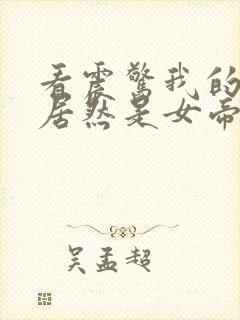 看震惊我的
居然是女帝
吴孟超